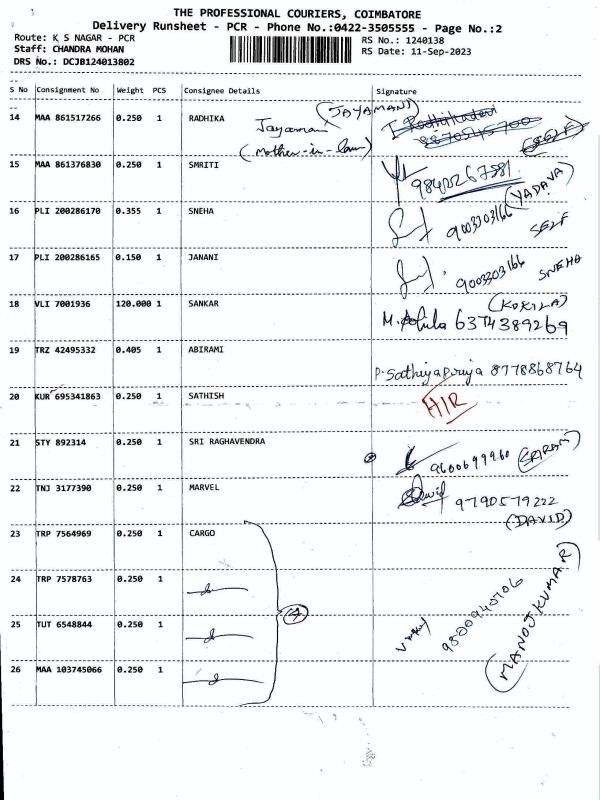 THE PROFESSIONAL COURIERS, COIMBATORE
Delivery Runsheet - PCR - Phone No.:0422-3505555 - Page No.:2
Route: K S NAGAR - PCR
RS No.: 1240138
Staff: CHANDRA MOHAN
RS Date: 11-Sep-2023
DRS No.: DCJB124013802
S No Consignment No Weight PCS Consignee Details Signature
14 MAA 861517266 0.250 1 RADHIKA
Jayamani (JAYAMANI)
(Mother-in-law)
(SELF)
15 MAA 861376830 0.250 1 SMRITI
9842267581
(YADAVA)
16 PLI 200286170 0.355 1 SNEHA
9003303166 SELF
17 PLI 200286165 0.150 1 JANANI
9003303166 SNEHA
18 VLI 7001936 120.000 1 SANKAR
(KOKILA)
6374389269
19 TRZ 42495332 0.405 1 ABIRAMI
P. Sathiyapriya 8778868764
20 KUR 695341863 0.250 1 SATHISH
H/R
21 STY 892314 0.250 1 SRI RAGHAVENDRA
9600699960 (SRIRAM)
22 TNJ 3177390 0.250 1 MARVEL
David 9790579222
(DAVID)
23 TRP 7564969 0.250 1 CARGO
24 TRP 7578763 0.250 1
25 TUT 6548844 0.250 1
4
9500940706
(MANOJKUMAR)
26 MAA 103745066 0.250 1